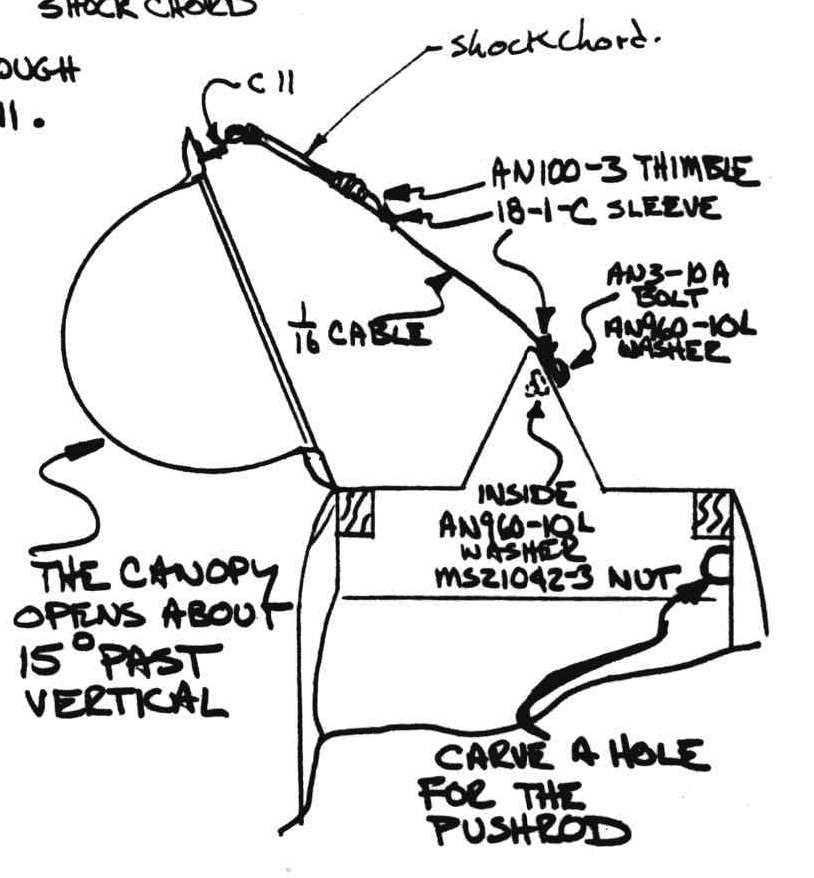 SHOCK CHORD
OUGH
11.
shock chord.
C11
AN100-3 THIMBLE
18-1-C SLEEVE
AN3-10A
BOLT
AN960-10L
WASHER
1/16 CABLE
INSIDE
AN960-10L
WASHER
MS21042-3 NUT
THE CANOPY
OPENS ABOUT
15° PAST
VERTICAL
CARVE A HOLE
FOR THE
PUSHROD